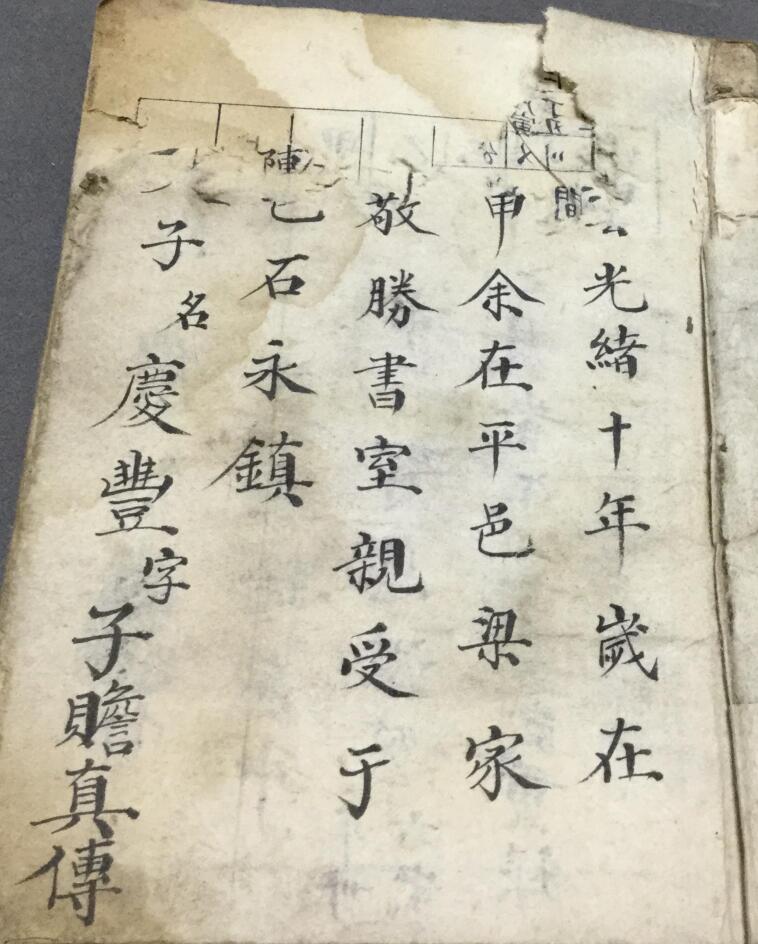 光緒十年歲在
甲余在平邑梁家
敬勝書室親受于
陣乜石永鎮
子名慶豐字子贍真傳